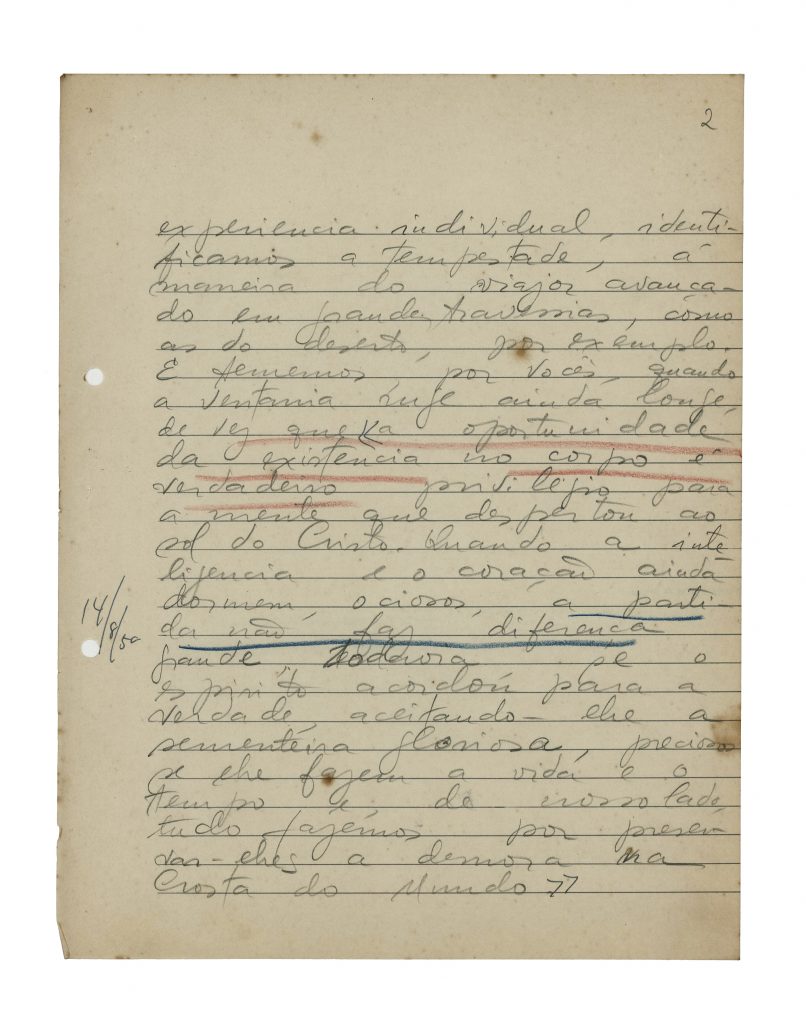 2
experiencia individual, identi-
ficamos a tempestade, á
maneira do viajor avança-
do em grandes travessias, como
as do deserto, por exemplo.
E tememos, por vocês, quando
a ventania ruge ainda longe,
de vez que a oportunidade
da existencia no corpo é
verdadeiro privilégio para
a mente que despertou ao
sol do Cristo. Quando a inte-
ligencia e o coração ainda
dormem, ociosos, a parti-
14/8/50
da não faz diferença
grande, todavia se o
espirito acordou para a
verdade, aceitando-lhe a
sementeira gloriosa, preciosos
se lhe fazem a vida e o
tempo e de nosso lado,
tudo fazemos por preser-
var-lhes a demora na
Crosta do Mundo